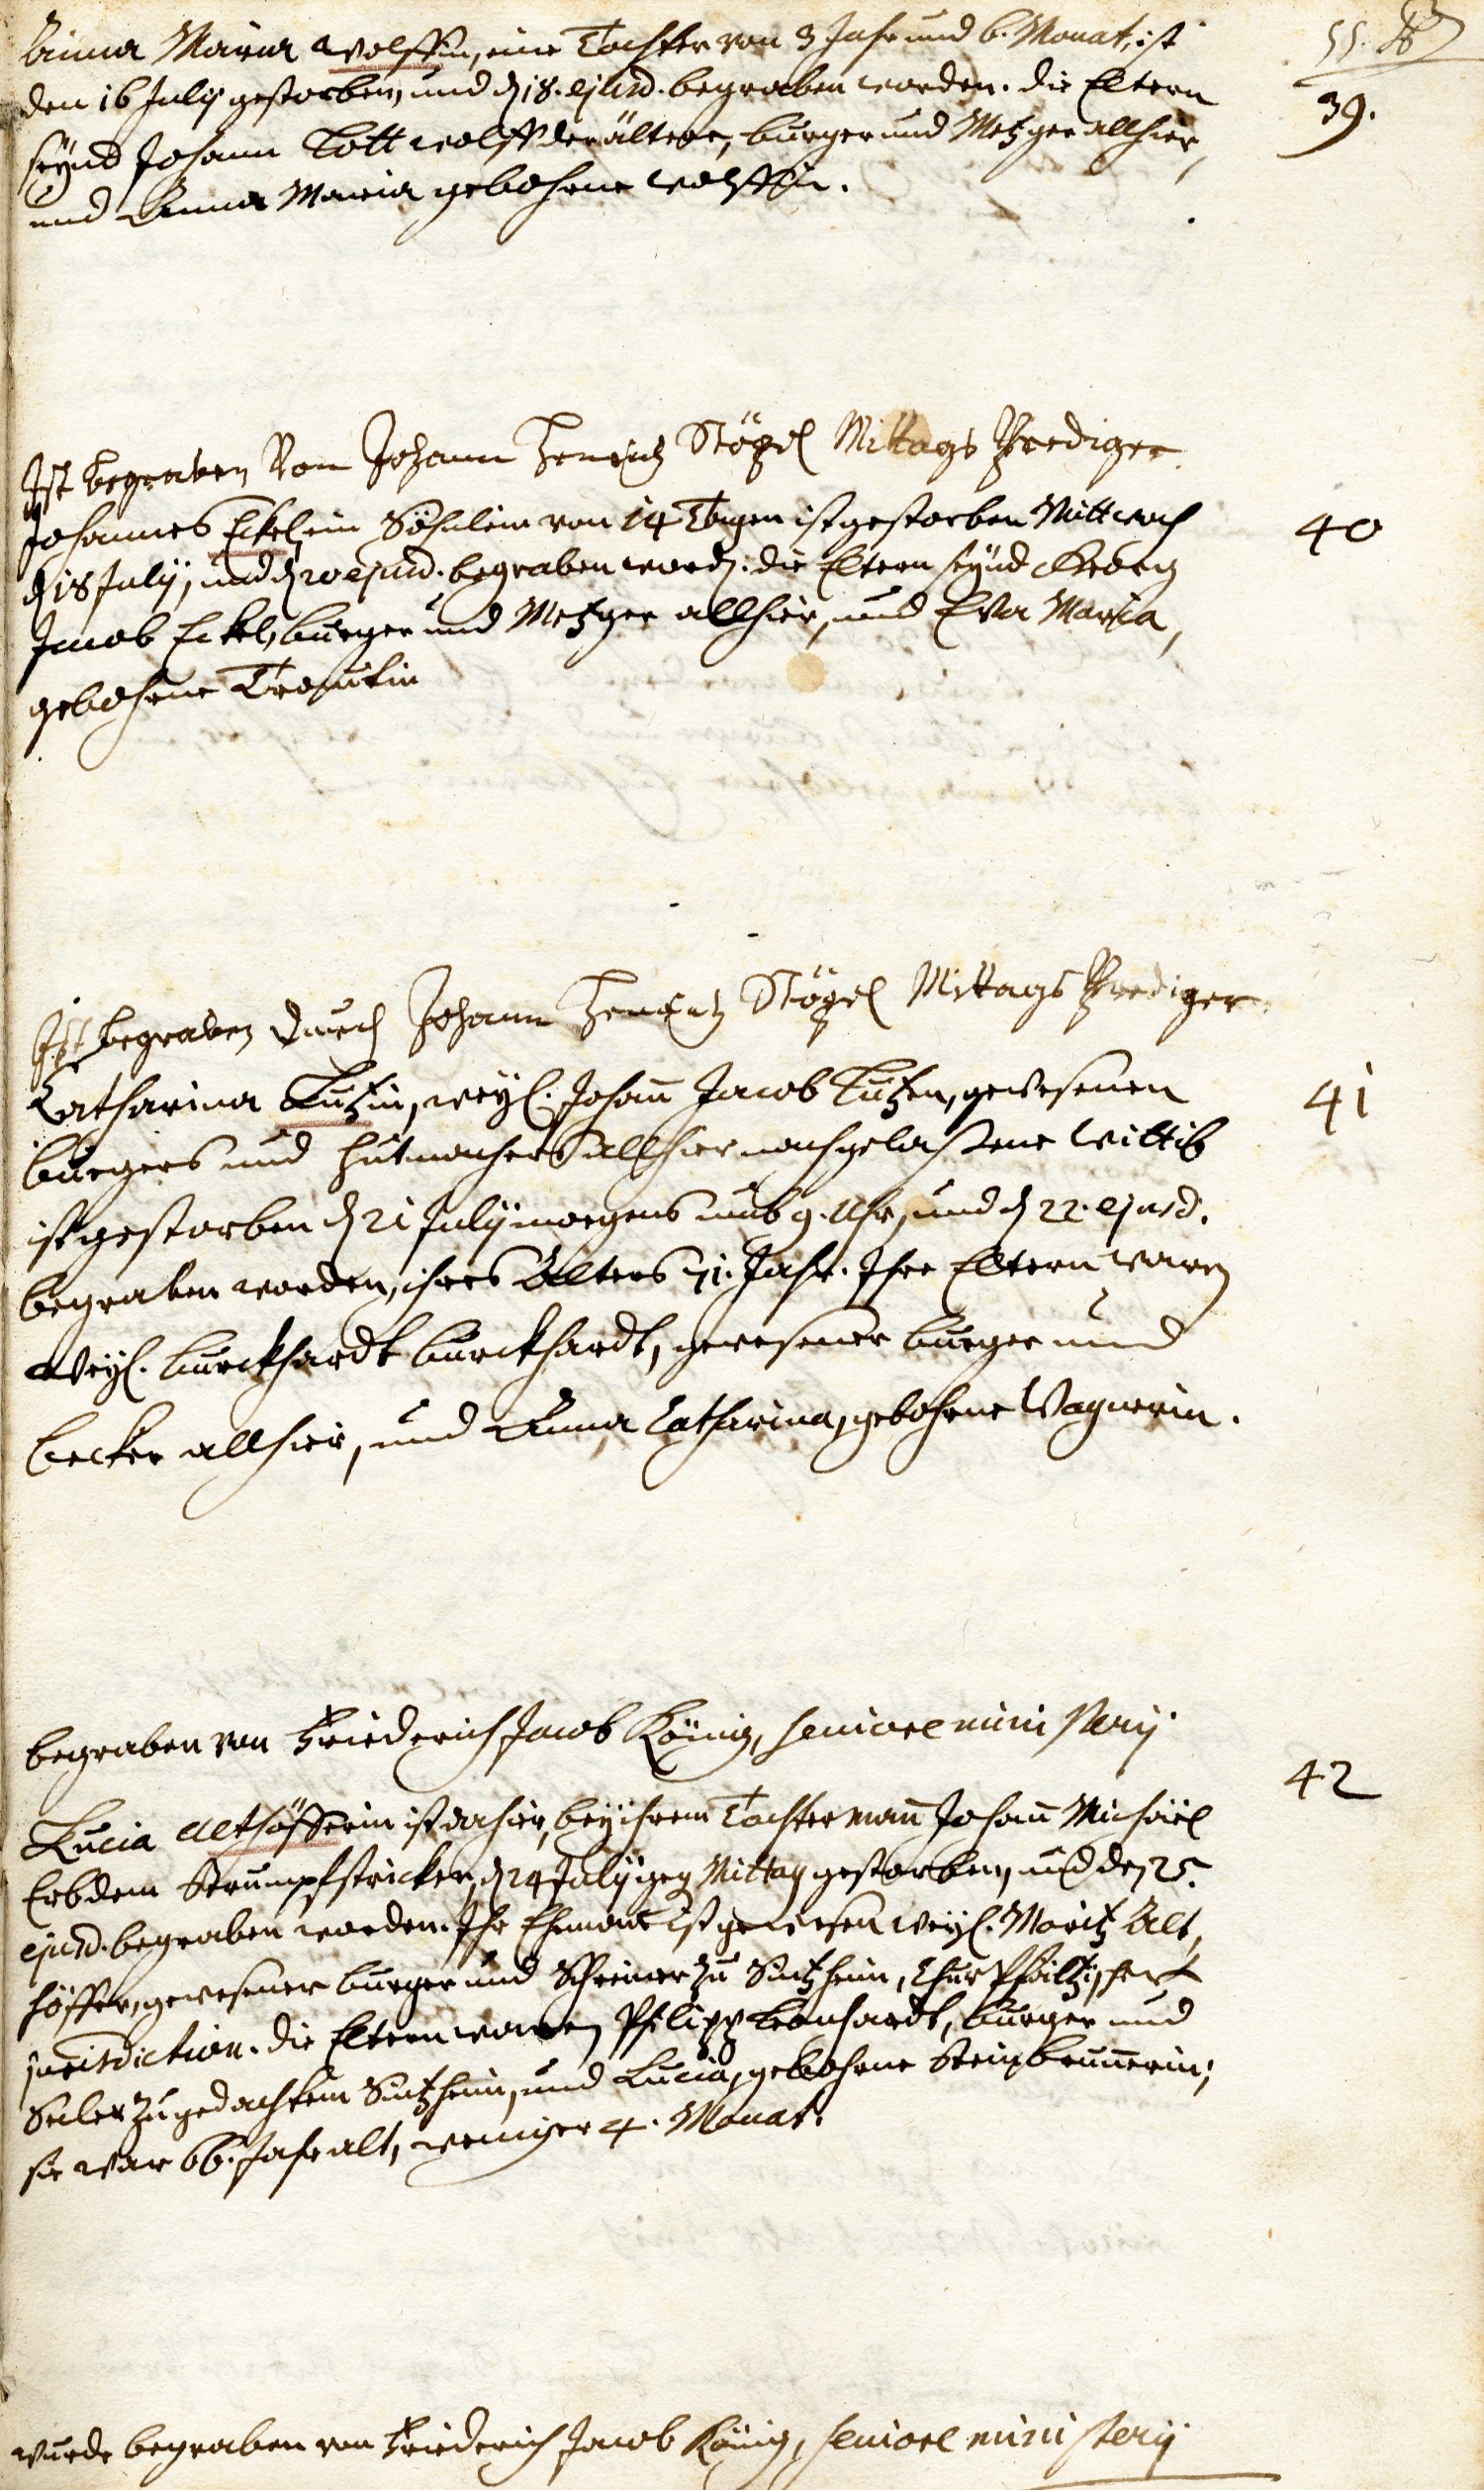 55.
39.
Anna Maria Wolffin, eine Tochter von 3 Jahr und 6. Monat, ist
den 16 July gestorben, und d. 18. ejusd. begraben worden. die Eltern
seynd Johann Lott Wolff der ältere, burger und Metzger allhier,
und Anna Maria gebohrne Wolffin.
Ist begraben Von Johann Henrich Stögel Mittags Prediger.
40
Johannes Eckel, ein Söhnlein von 14 Tagen ist gestorben Mittwoch
d 18 July, und d 20 ejusd. begraben word. die Eltern seynd Georg
Jacob Eckel, burger und Metzger allhier, und Eva Maria,
gebohrne Trautin
Ist begraben durch Johann Henrich Stögel Mittags Prediger.
41
Catharina Lutzin, weyl. Johan Jacob Lutzen, gewesenen
burgers und Hutmachers allhier nachgelassene Wittib
ist gestorben d 21 July morgens umb 9. Uhr, und d 22. ejusd.
begraben worden, ihres Alters 71. Jahr. Ihre Eltern waren
Weyl. burckhardt burckhardt, gewesener burger und
becker allhier, und Anna Catharina, gebohrne Wagnerin.
begraben von Friederich Jacob König, seniore ministerij
42
Lucia Althöfferin ist dahier, bey ihrem Tochtermañ Johañ Michäel
Erbdem Strumpfstricker, d 24 July geg Mittag gestorben, und den 25.
ejusd. begraben worden. Ihr Ehemann ist gewesen weyl. Moritz Alt,
höffer, gewesener burger und Schreiner zu Sintzheim, Chur Pfältzischer
jurisdiction. die Eltern waren Philipp Leonhardt, burger und
Seiler zu gedachtem Sintzheim, und Lucia, gebohrne Steinbrunnerin;
sie war 66. Jahr alt, weniger 4. Monat.
wurde begraben von Friederich Jacob König, seniore ministerij